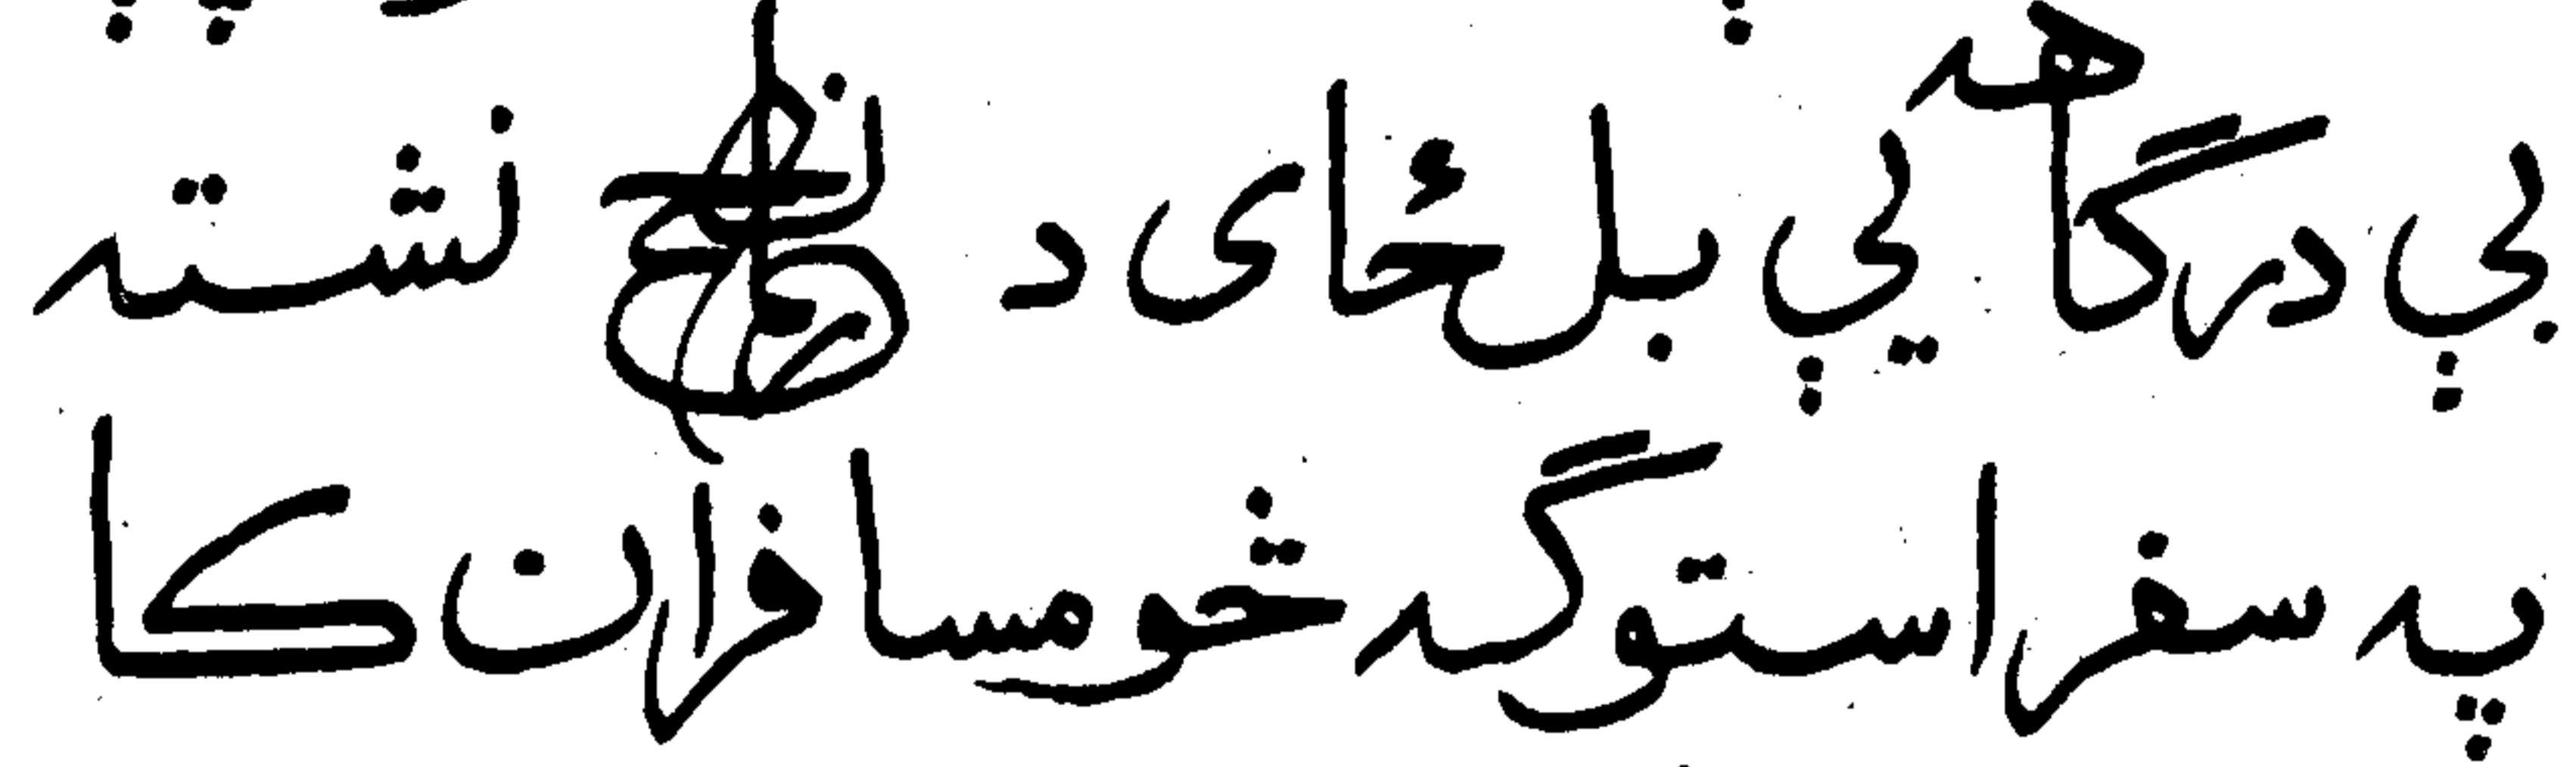 بې درگاهه يې بل ځاى د نشته
په سفر استوگه څو مسافران كا